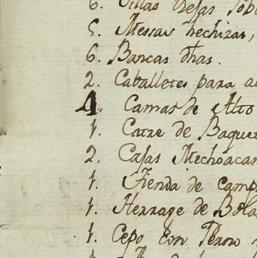 6. Sillas
5. Messas hechizas,
6. Bancas dhas.
2. Caballetes para
4 Camas de Alto
1. Catre de Baque
2. Cajas Mechoacan
1. Tienda de camp
1. Herrage de
1. Cepo con Perno